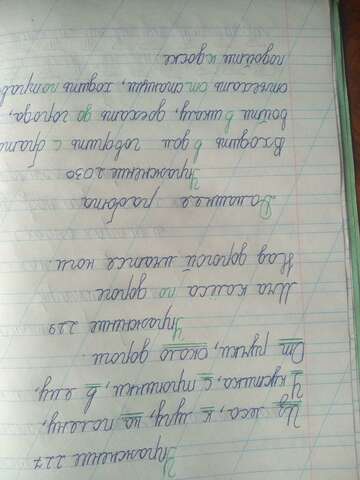 Упражнение 227
Из леса, к лугу, на поляну,
У кустика, с тропинки, в яму,
От ручки, около дороги.
Упражнение 229
колёса по дороге
Над дорогой мчатся ноги.
Домашняя работа
Упражнение 2030
Входить в дом говорить с брато
войти в школу, доехать до города,
отъехать от станции, ходить по трав
подойти к доске.